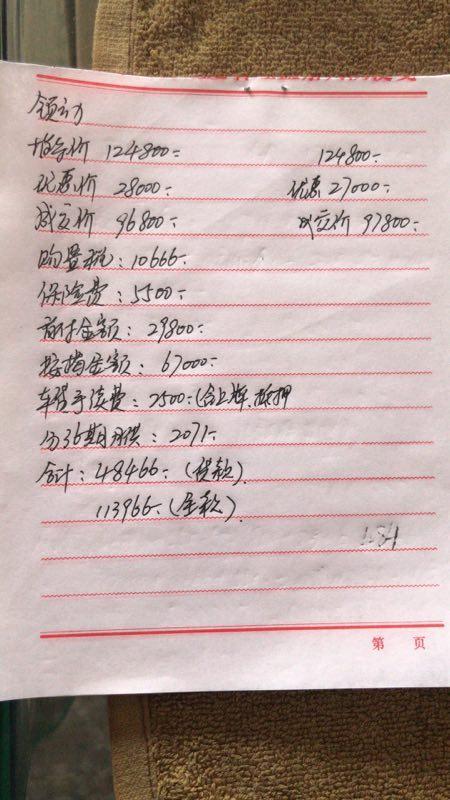 领动
指导价 124800.- 124800.-
优惠价 28000.- 优惠 27000.-
成交价 96800.- 成交价 97800.-
购置税：10666.-
保险费：5500.-
首付金额：29800.-
按揭金额：67000.-
车贷手续费：2500.-(含上牌.抵押
分36期月供：2071.-
合计：48466.-(贷款).
113966.-(全款).
第 页